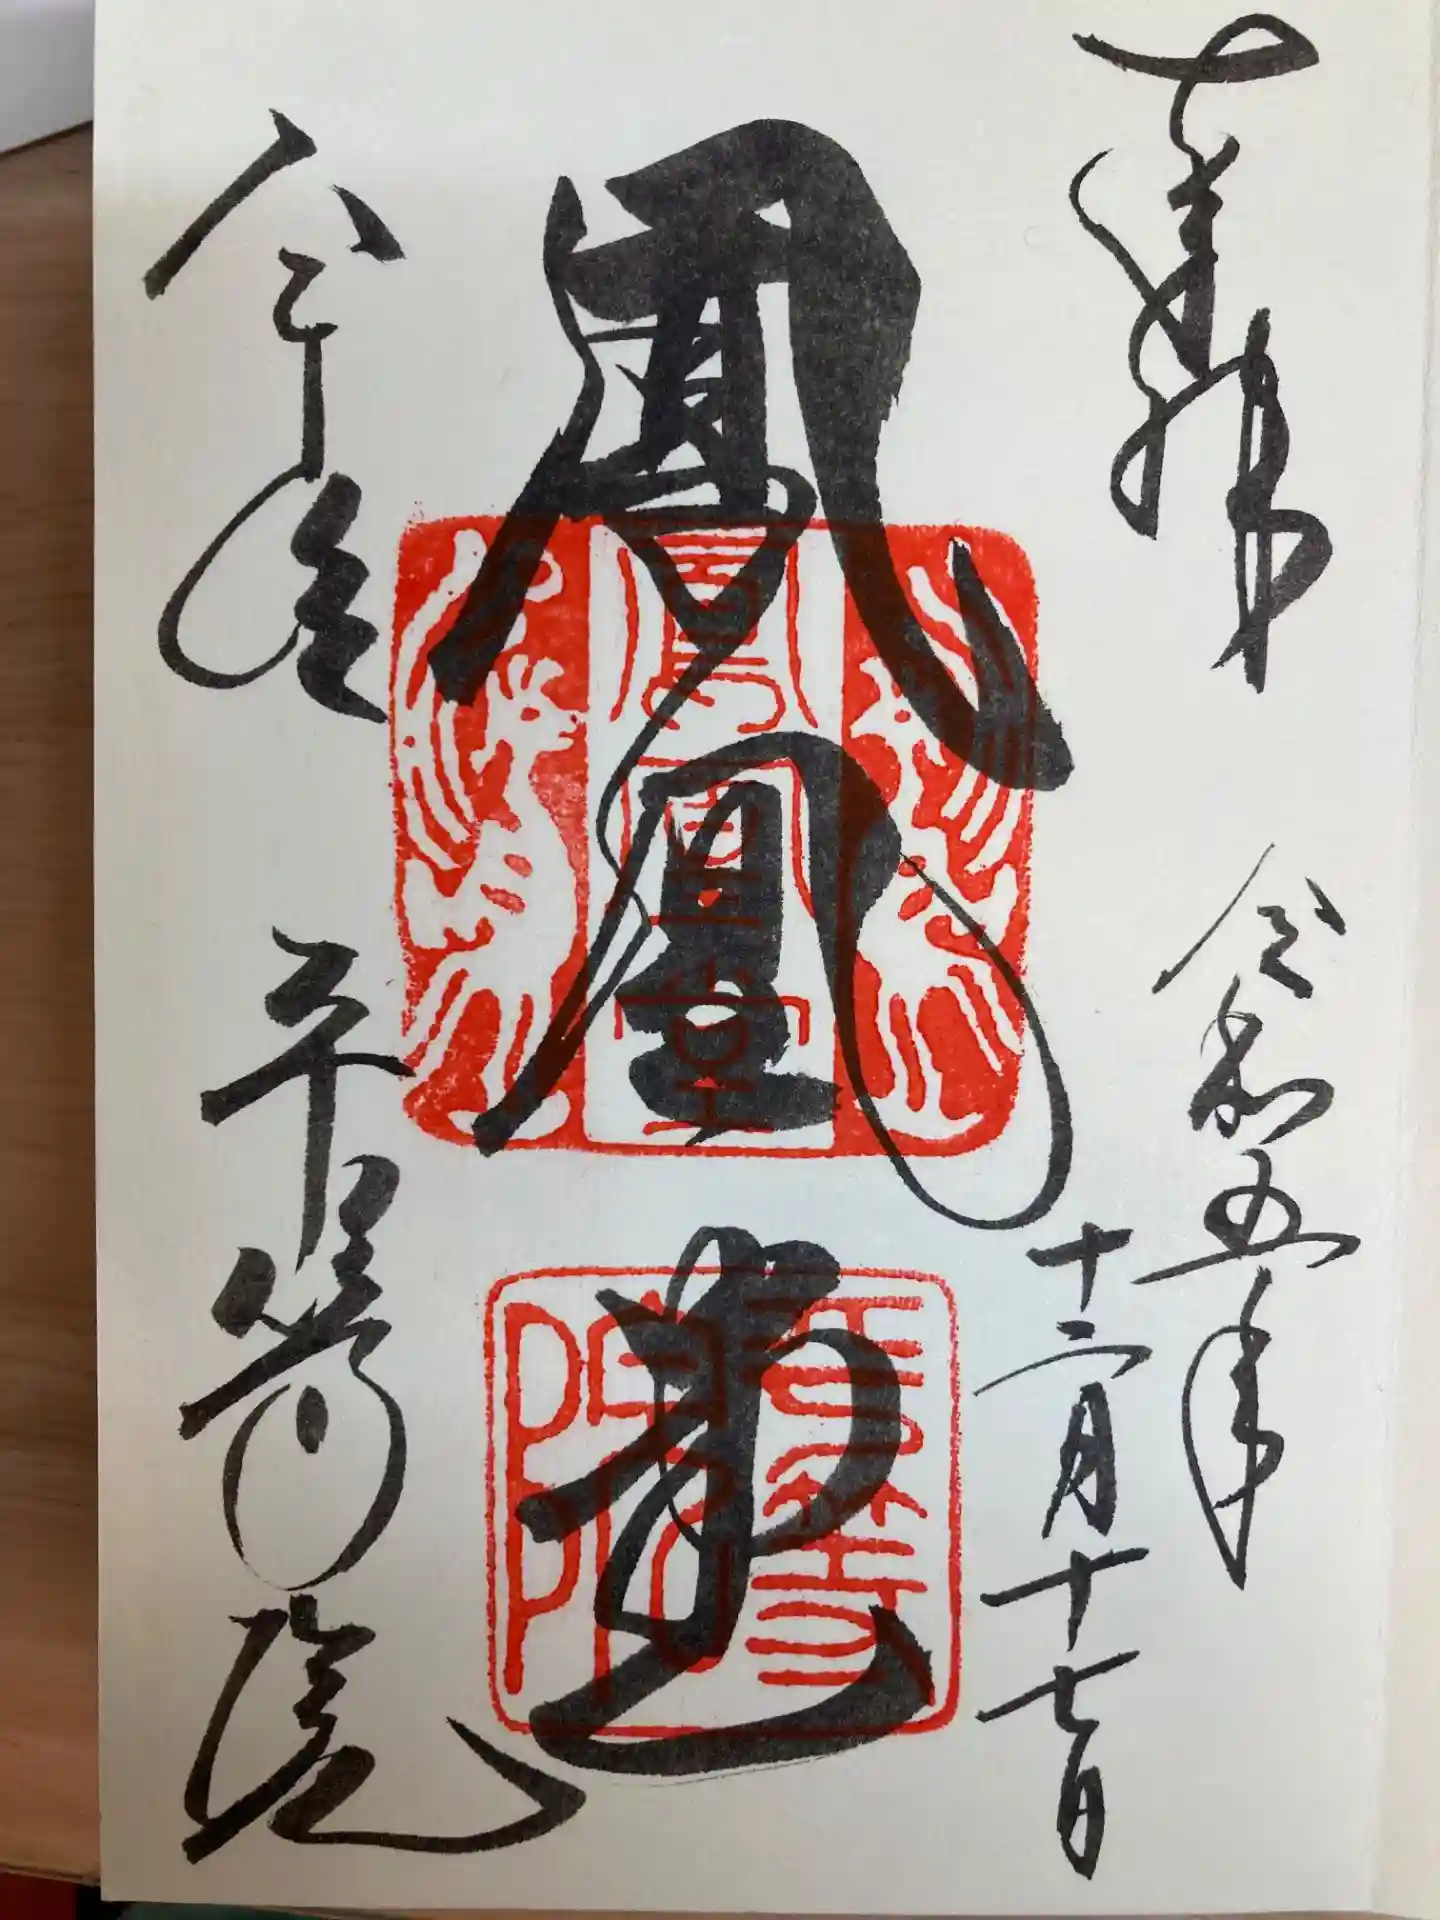 奉拝
令和五年
十二月十七日
鳳凰堂
鳳凰堂
平等院
平等院